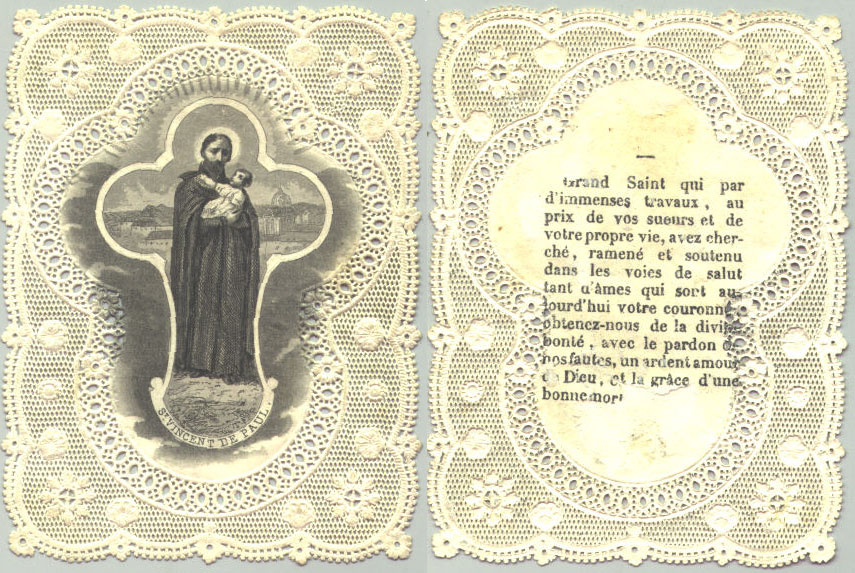 St VINCENT DE PAUL.
Grand Saint qui par
d'immenses travaux, au
prix de vos sueurs et de
votre propre vie, avez cher-
ché, ramené et soutenu
dans les voies de salut
tant d'âmes qui sont au-
jourd'hui votre couronne,
obtenez-nous de la divine
bonté, avec le pardon de
nos fautes, un ardent amour
de Dieu, et la grâce d'une
bonne mort